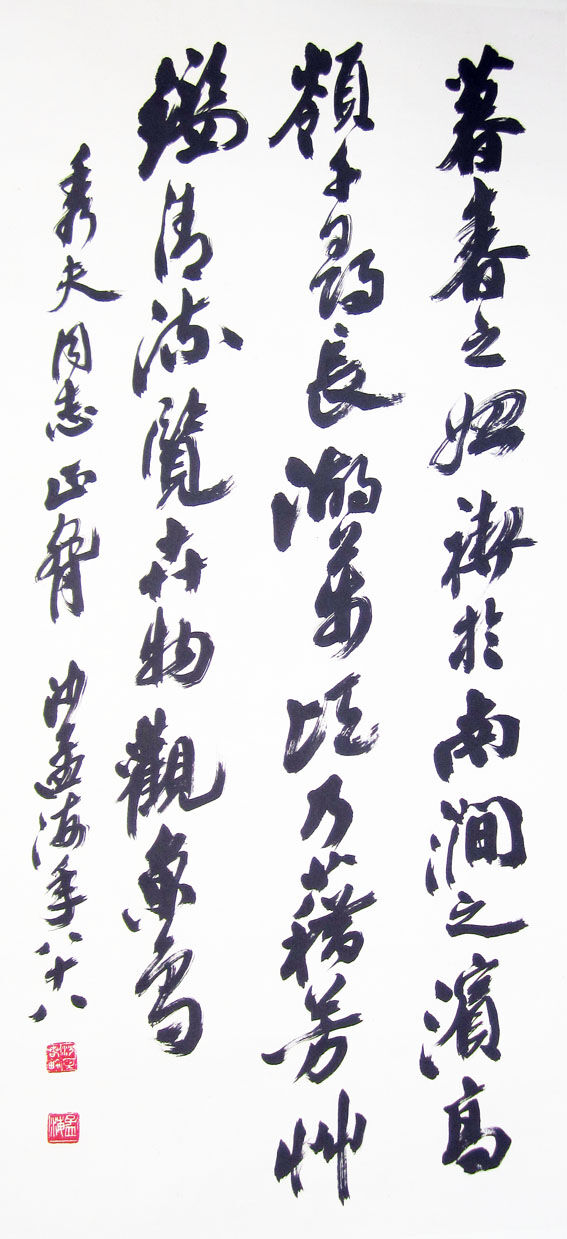 暮春之始禊於南澗之濱高
嶺千尋長湖萬頃乃藉芳艸
鑑清流覽卉物觀魚鳥
秀夫同志正 沙孟海年八十八
孟海